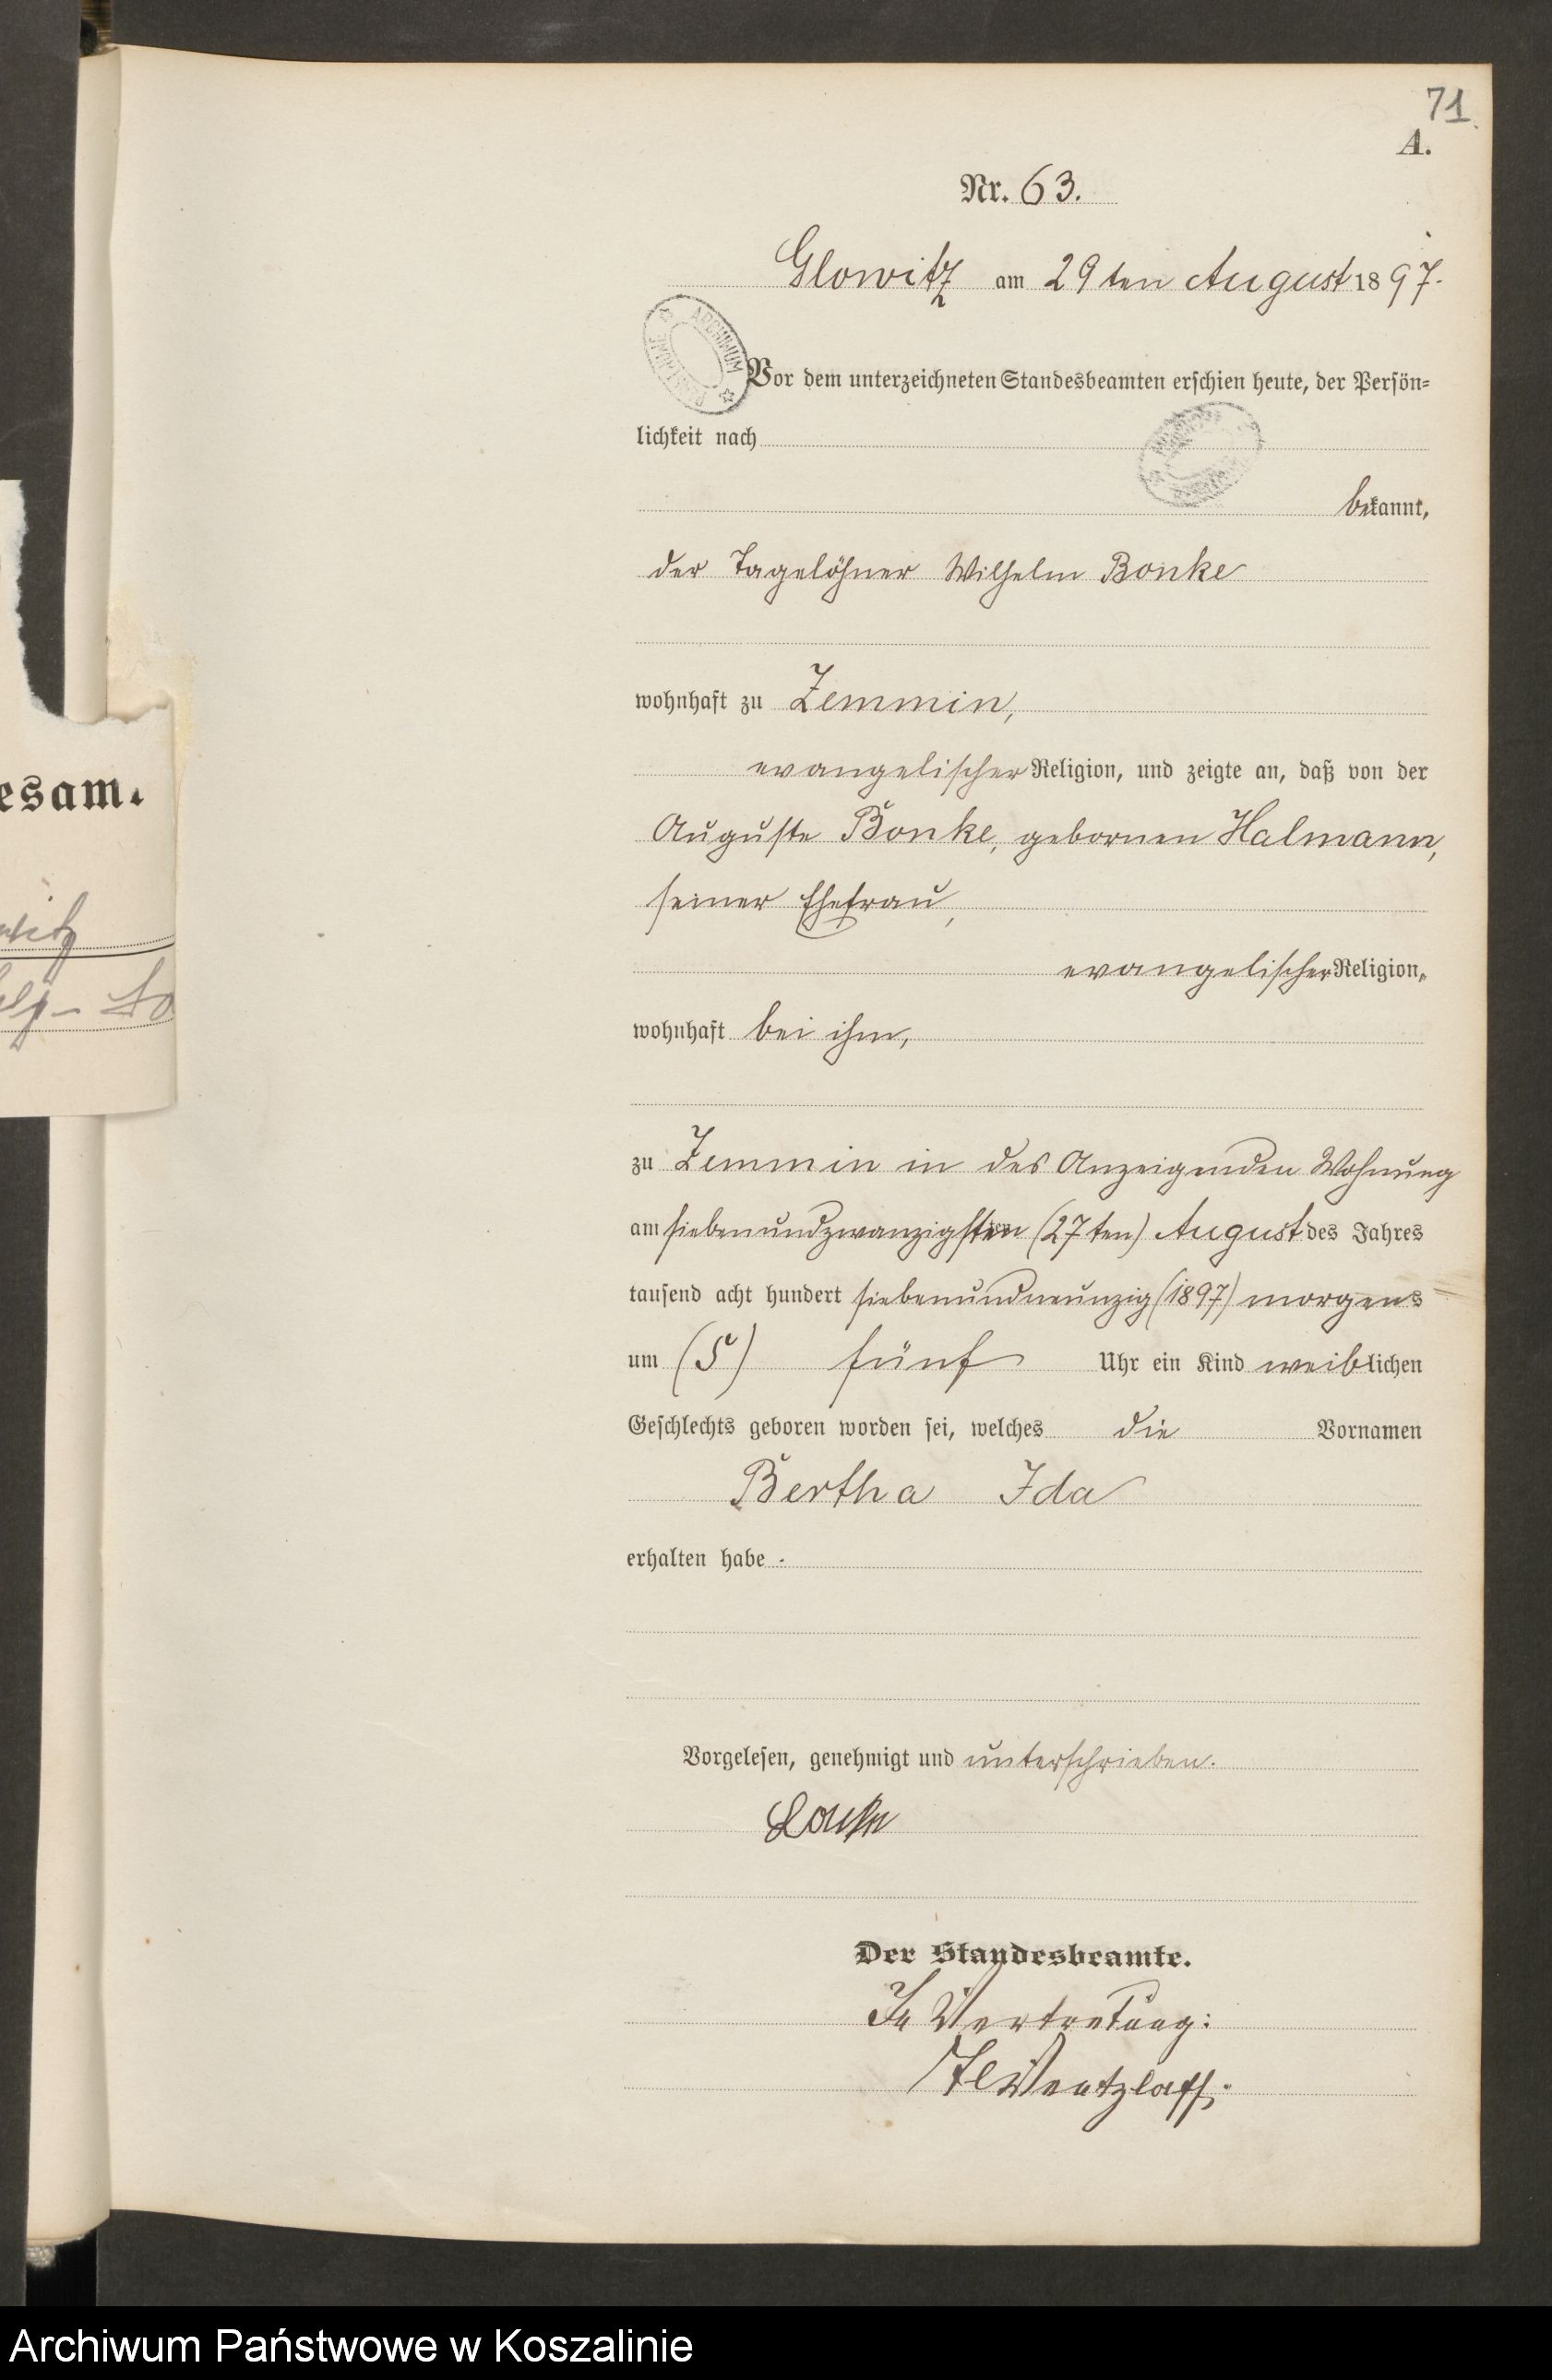 71.
A.
Nr. 63.
Glowitz am 29ten August 1897.
ARCHIWUM
Vor dem unterzeichneten Standesbeamten erschien heute, der Persön=
lichkeit nach
bekannt,
der Tagelöhner Wilhelm Bonke
wohnhaft zu Zemmin,
evangelischer Religion, und zeigte an, daß von der
Auguste Bonke, gebornen Halmann,
seiner Ehefrau,
evangelischer Religion,
wohnhaft bei ihm,
zu Zemmin in des Anzeigenden Wohnung
am siebenundzwanzigsten (27ten) August des Jahres
tausend acht hundert siebenundneunzig (1897) morgens
um (5) fünf Uhr ein Kind weiblichen
Geschlechts geboren worden sei, welches die Vornamen
Bertha Ida
erhalten habe.
Vorgelesen, genehmigt und unterschrieben.
Der Standesbeamte.
In Vertretung:
Wentzlaff.
esam.
witz
Archiwum Państwowe w Koszalinie